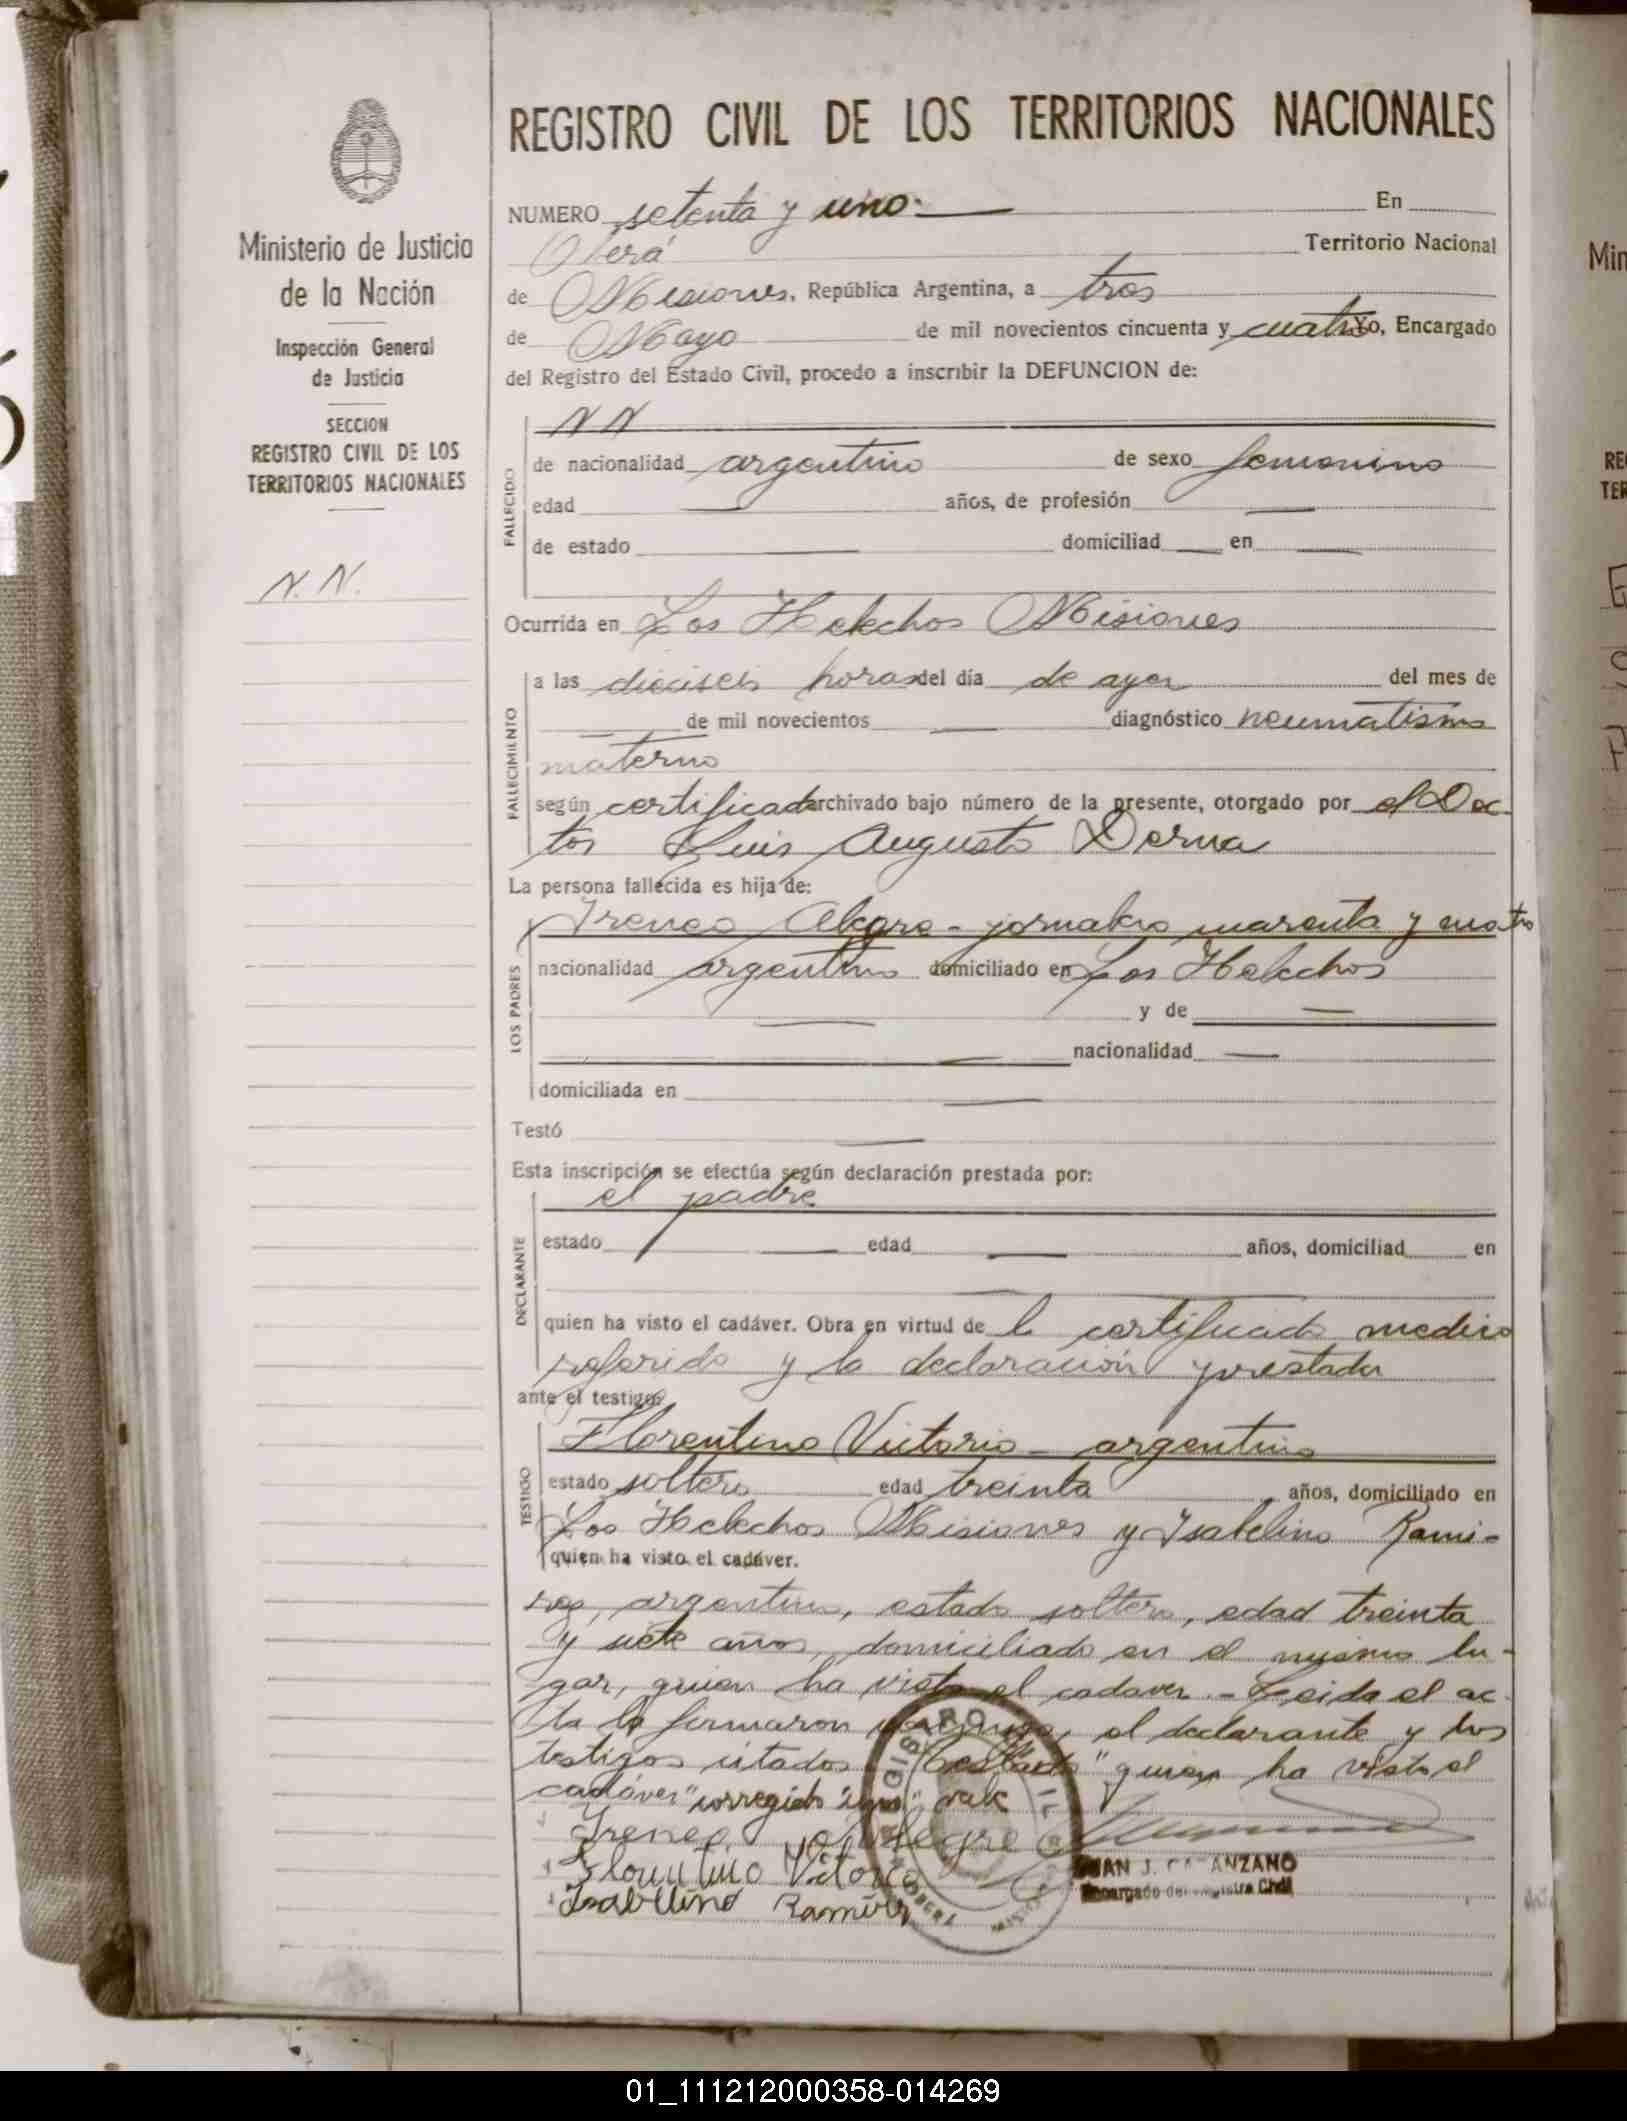 REGISTRO CIVIL DE LOS TERRITORIOS NACIONALES
Ministerio de Justicia
de la Nación
Inspección General
de Justicia
SECCION
REGISTRO CIVIL DE LOS
TERRITORIOS NACIONALES
N.N.
NUMERO setenta y uno.— En
Oberá Territorio Nacional
de Misiones, República Argentina, a tres
de Mayo de mil novecientos cincuenta y cuatro Yo, Encargado
del Registro del Estado Civil, procedo a inscribir la DEFUNCION de:
FALLECIDO
N N
de nacionalidad argentino de sexo femenino
edad — años, de profesión —
de estado — domiciliad — en —
Ocurrida en Los Helechos Misiones
FALLECIMIENTO
a las dieciseis horas del día de ayer del mes de
— de mil novecientos — diagnóstico neumatismo
materno
según certificado archivado bajo número de la presente, otorgado por el Doc-
tor Luis Augusto Derna
La persona fallecida es hija de:
LOS PADRES
Ireneo Alegre - jornalero cuarenta y cuatro
nacionalidad argentino domiciliado en Los Helechos
— y de —
— nacionalidad —
domiciliada en —
Testó —
Esta inscripción se efectúa según declaración prestada por:
DECLARANTE
el padre
estado — edad — años, domiciliad en
—
quien ha visto el cadáver. Obra en virtud de l certificado medico
referido y la declaración prestada
ante el testigo:
TESTIGO
Florentino Victorio - argentino
estado soltero edad treinta años, domiciliado en
Los Helechos Misiones y Isabelino Rami-
quien ha visto el cadáver.
rez, argentino, estado soltero, edad treinta
y siete años, domiciliado en el mismo lu-
gar, quien ha visto el cadaver. - Leida el ac-
ta la firmaron conmigo, el declarante y los
testigos citados. Testado "quien ha visto el
cadáver" corregido "uno" vale
Ireneo Alegre
Florentino Victorio
Isabelino Ramirez
REGISTRO CIVIL
OBERA MISIONES
JUAN J. CATANZANO
Encargado del Registro Civil
Min
RE
TER
01_111212000358-014269